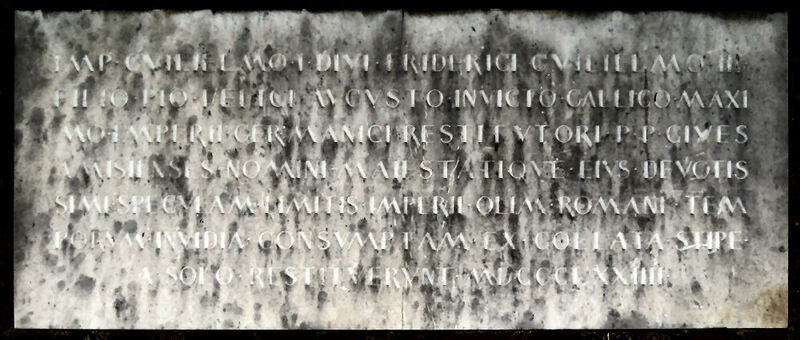 IMP·GVILIELMO·I·DIVI·FRIDERICI·GVILIELMO·III·
FILIO·PIO·FELICI·AVGVSTO·INVICTO·GALLICO·MAXI
MO·IMPERII·GERMANICI·RESTITVTORI·P·P·CIVES
AMISIENSES·NOMINI·MAIESTATIQVE·EIVS·DEVOTIS
SIMI·SPECVLAM·LIMITIS·IMPERII·OLIM·ROMANI·TEM
PORVM·INVIDIA·CONSVMPTAM·EX·COLLATA·STIPE·
A·SOLO·RESTITVERVNT·MDCCCLXXIIII·